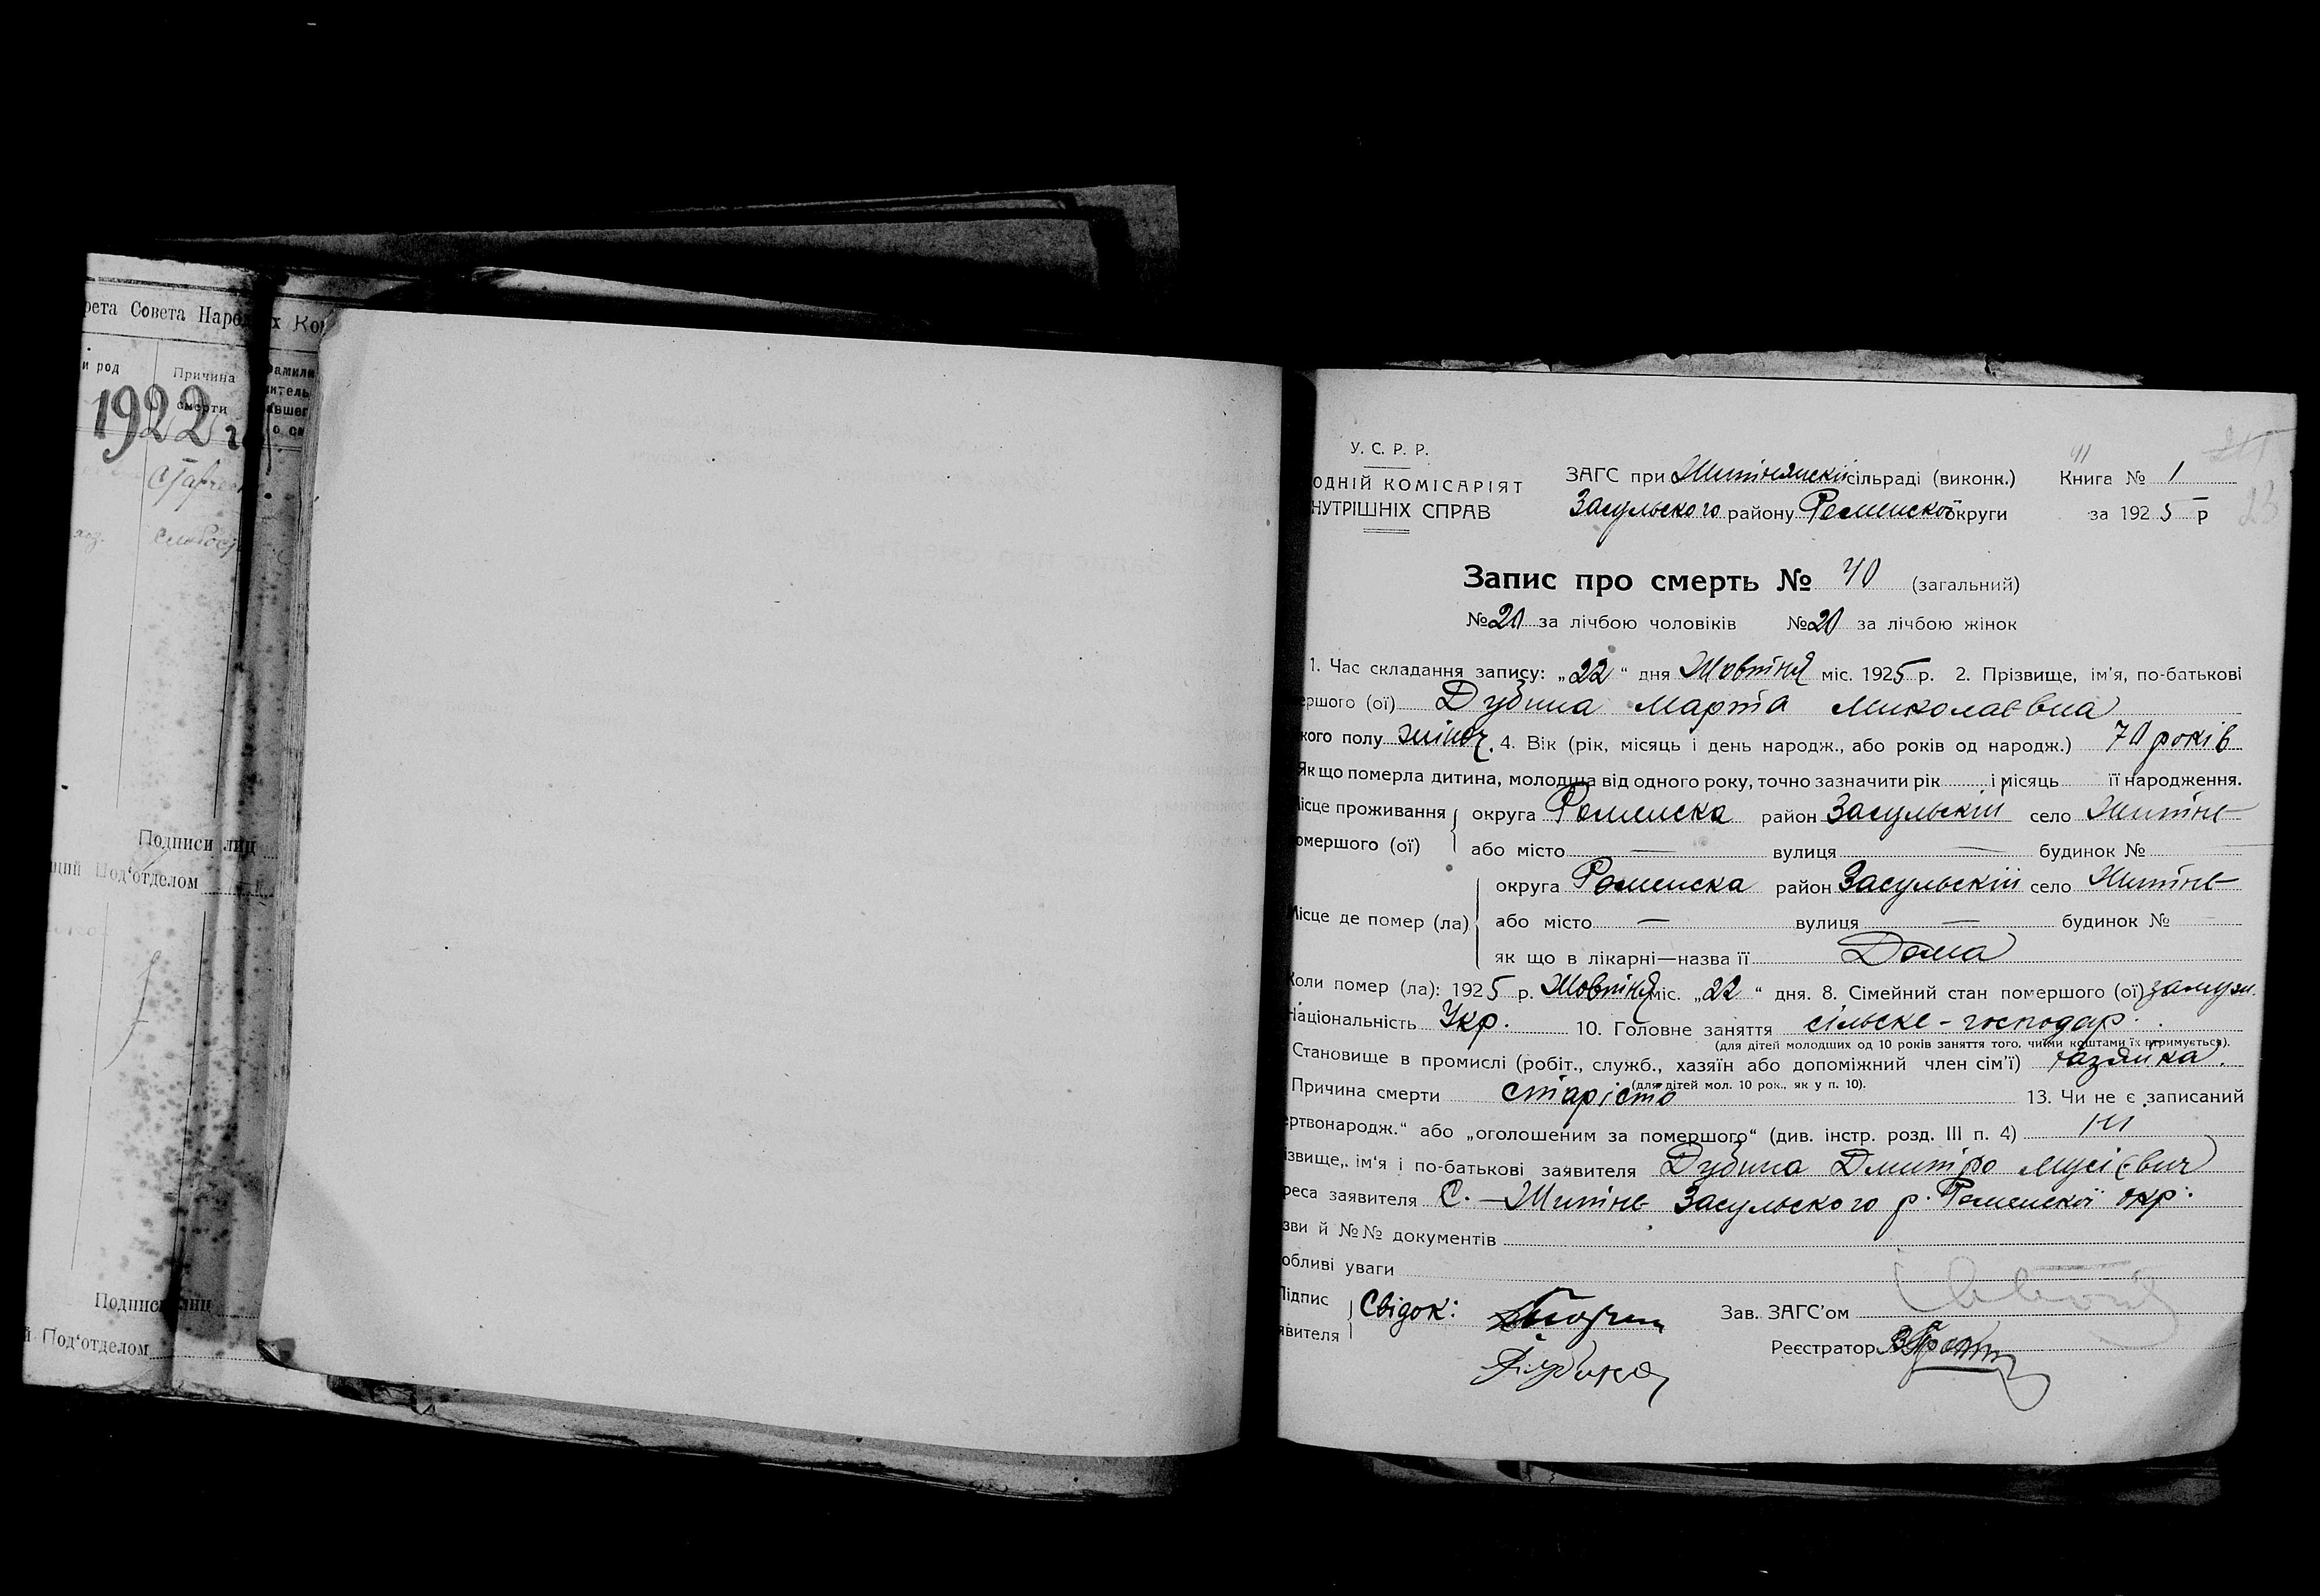 рета Совета Народ х Ко
и род
Причина
смерти
1922 г
амили
итель
авшег
о см
Подписи лиц
щий Под‘отделом
Подписи лиц
й Под‘отделом
У. С. Р. Р.
ОДНІЙ КОМІСАРІЯТ
НУТРІШНІХ СПРАВ
ЗАГС при Житнянскій сільраді (виконк.)
Засульского району Роменскої округи
Книга № 1
за 1925 р
Запис про смерть № 40 (загальний)
№ 20 за лічбою чоловіків № 20 за лічбою жінок
1. Час складання запису: „22“ дня Жовтня міс. 1925 р. 2. Прізвище, ім’я, по-батькові
ершого (ої) Дубина Марта Миколаєвна
кого полу жіноч. 4. Вік (рік, місяць і день народж., або років од народж.) 70 років
Як що померла дитина, молодша від одного року, точно зазначити рік і місяць її народження.
ісце проживання
омершого (ої)
округа Роменска район Засульскій село Житнє
або місто — вулиця — будинок №
ісце де помер (ла)
округа Роменска район Засульскій село Житнє
або місто — вулиця — будинок № —
як що в лікарні—назва її Дома
Коли помер (ла): 1925 р. Жовтня міс. „22“ дня. 8. Сімейний стан помершого (ої) замуж.
Національність Укр. 10. Головне заняття сільске-господар.
(для дітей молодших од 10 років заняття того, чиїми коштами їх втримується).
Становище в промислі (робіт., служб., хазяїн або допоміжний член сім’ї) хазяйка.
(для дітей мол. 10 рок., як у п. 10).
Причина смерти старість 13. Чи не є записаний
ертвонародж.“ або „оголошеним за помершого“ (див. інстр. розд. III п. 4) ні
ізвище, ім‘я і по-батькові заявителя Дубина Дмитро Мусієвич
реса заявителя С. — Житнє Засульского р. Роменскої окр.
зви й №№ документів
обливі уваги
Підпис
явителя
Свідок:
Дубина
Зав. ЗАГС’ом
Реєстратор